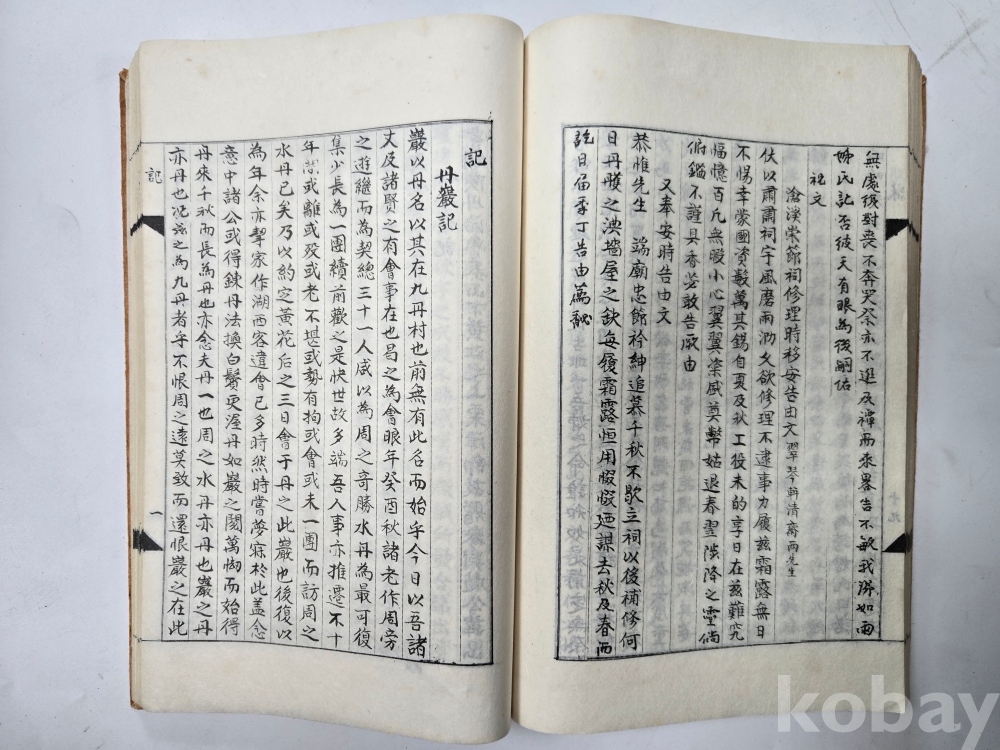 無處後對喪不奔哭癸亦不進及禫而來畧告不敏我胖如雨
姊氏記否徒天有眼為後嗣佑
祝文
滄溪崇節祠修理時移安告由文 翠琴軒淸齋兩先生
伏以肅肅祠宇風磨雨泐久欲修理不逮事力履玆霜露無日
不惕幸蒙國資數萬其錫自夏及秋工役未的享日在玆難究
愊憶百凡無暇小心翼翼粢盛奠幣姑退春翌陟降之靈倘
俯鑑不謹具香芼敢告厥由
又奉安時告由文
恭惟先生 端廟忠節衿紳追慕千秋不歇立祠以後補修何
日丹雘之泱墻屋之缺每履霜露恒用惙惙廼謀去秋及春而
訖日屆季丁告由薦訑
記
丹巖記
巖以丹名以其在九丹村也前無有此名而始乎今日以吾諸
丈及諸賢之有會事在也曷之為會眼年癸酉秋諸老作周旁
之遊繼而為契總三十一人咸以為周之奇勝水丹為最可復
集少長為一團續前歡之是快世故多端吾人事亦推遷不十
年間或離或歿或老不堪或勢有拘或會或未一團而訪周之
水丹已矣乃以約定黃花后之三日會于丹之此巖也後復以
為年余亦挈家作湖西客違會已多時然時嘗夢寐於此盖念
意中諸公或得鍊丹法換白鬢更渥丹如巖之閱萬刧而始得
丹來千秋而長為丹也亦念夫丹一也周之水丹亦丹也巖之丹
亦丹也况玆之為九丹者乎不恨周之遠莫致而還恨巖之在此
記
一
kobay